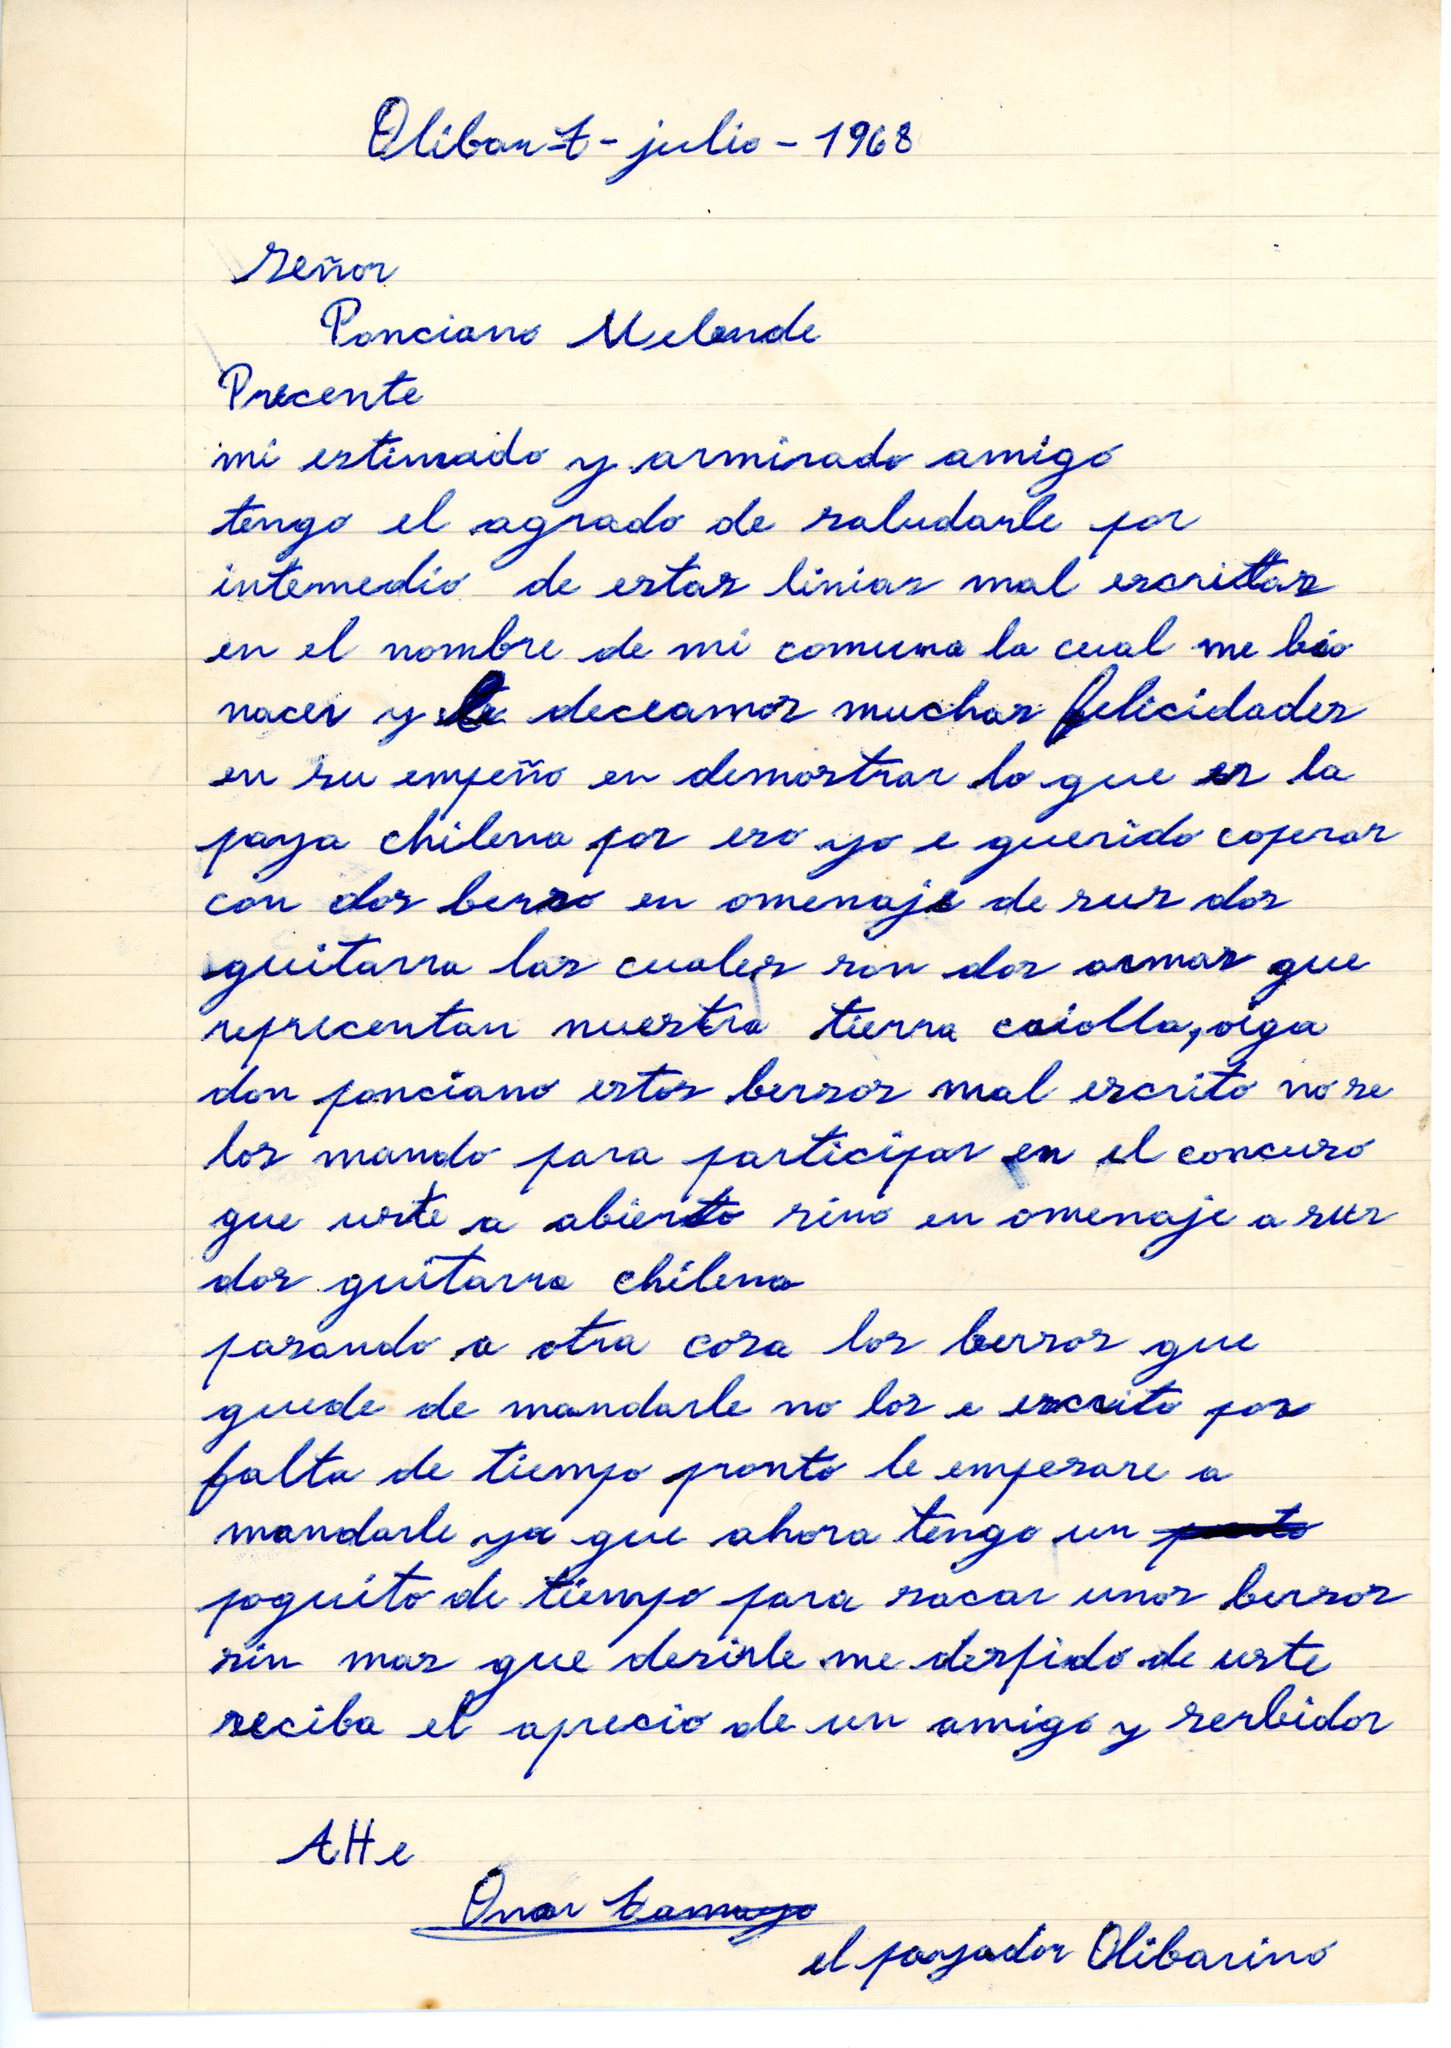 Olibar-7-julio-1968
señor
Ponciano Melende
Precente
mi estimado y armirado amigo
tengo el agrado de saludarle por
intemedio de estas linias mal escrittas
en el nombre de mi comuna la cual me bio
nacer y le deceamos muchas felicidades
en su empeño en demostrar lo que es la
paya chilena por eso yo e querido coperar
con dos berso en omenaje de sus dos
guitarra las cuales son dos armas que
reprecentan nuestra tierra criolla, oiga
don ponciano estos bersos mal escrito no se
los mando para participar en el concurso
que uste a abierto sino en omenaje a sus
dos guitarra chilena
pasando a otra cosa los bersos que
quede de mandarle no los e escrito por
falta de tiempo pronto le empesare a
mandarle ya que ahora tengo un
poquito de tiempo para sacar unos bersos
sin mas que desirle me despido de uste
reciba el aprecio de un amigo y serbidor
Atte
Omar Tamayo
el payador Olibarino